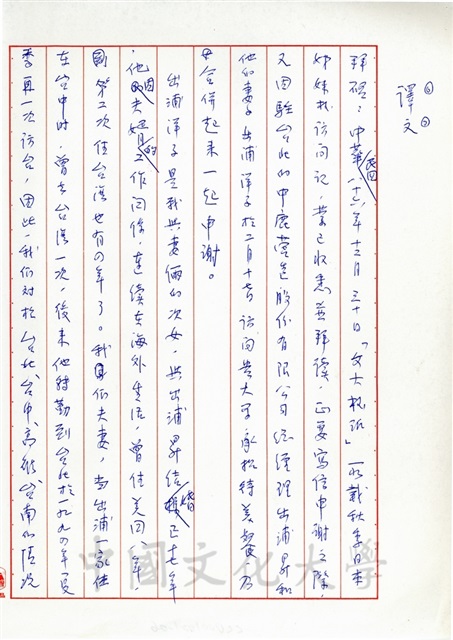 譯文
拜啓：中華民國八十六年十二月三十日「文大校訊」所載秋季日本
姊妹校訪問記，業已收悉並拜讀，正要寫信申謝之際，
又因駐台北的中鹿營造股份有限公司總經理出浦昇和
他的妻子出浦洋子於二月十七日訪問貴大學承招待美餐乃
合併起來一起申謝。
出浦洋子是我與妻倆的次女，與出浦昇結婚已十七年
，他因夫婿的工作關係，連續在海外生活，曾住美國八年，
第二次住台灣也有四年了。我們夫妻，當出浦一家住
在台中時，曾去台灣一次，後來他轉勤到台北於一九九四年夏
季再一次訪台，因此，我們對於台北、台中、高雄、台南的情況
中國文化大學